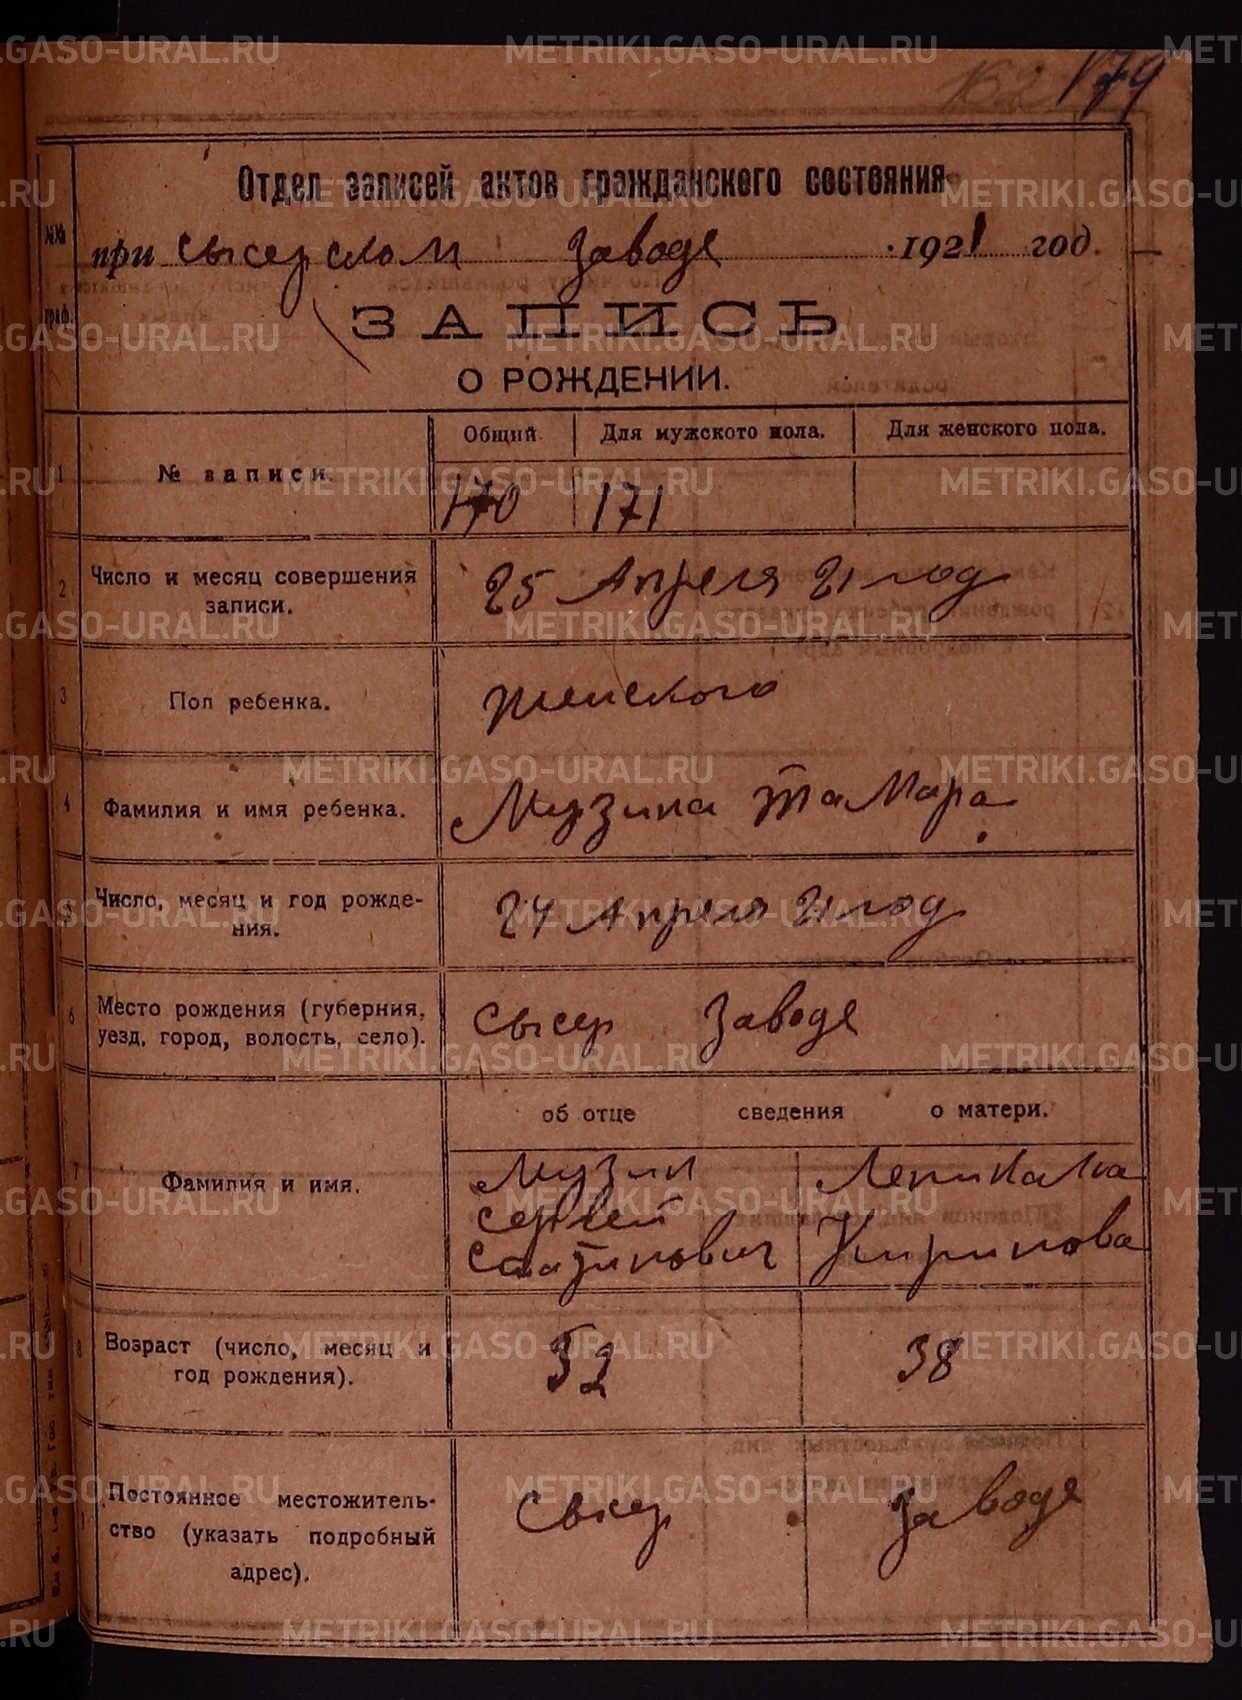 179
Отдел записей актов гражданского состояния
№№ граф.
при Сысерском Заводе 1921 год.
ЗАПИСЬ
О РОЖДЕНИИ.
Общий. Для мужского пола. Для женского пола.
1 № записи. 170 171
2 Число и месяц совершения 25 Апреля 21 год
записи.
3 Пол ребенка. женского
4 Фамилия и имя ребенка. Музина Тамара
5 Число, месяц и год рожде-
ния. 24 Апреля 21 год
6 Место рождения (губерния, Сысер Заводе
уезд, город, волость, село).
об отце сведения о матери.
7 Фамилия и имя. Музин
Сергей
Кирикова
8 Возраст (число, месяц и 52 38
год рождения).
Постоянное местожитель- Сысер Заводе
ство (указать подробный
адрес).
METRIKI.GASO-URAL.RU